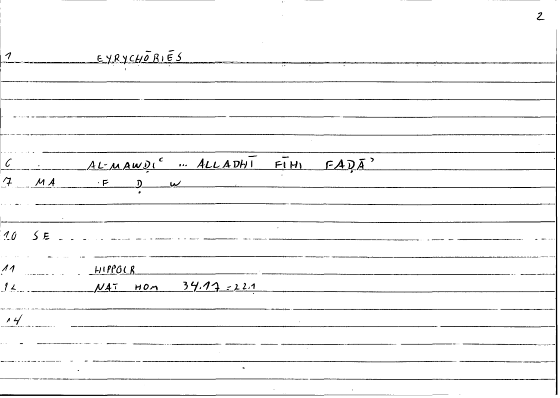 2
1 EYRYCHŌRIĒS
6 AL-MAWḌIʿ ... ALLADHĪ FĪHI FAḌĀʾ
7 MA F Ḍ W
10 SE
11 HIPPOCR
12 NAT HOM 34.17 = 22.1
14